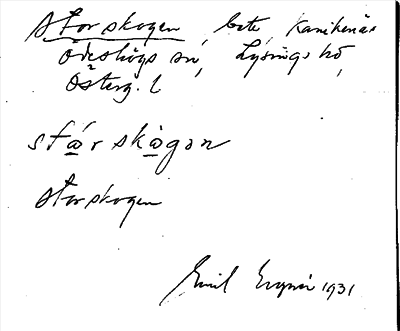 Storskogen, bete, Kanikenäs
Ödeshögs sn, Lysings hd,
Österg. l
stórskògən
Storskogen
Emil 1931